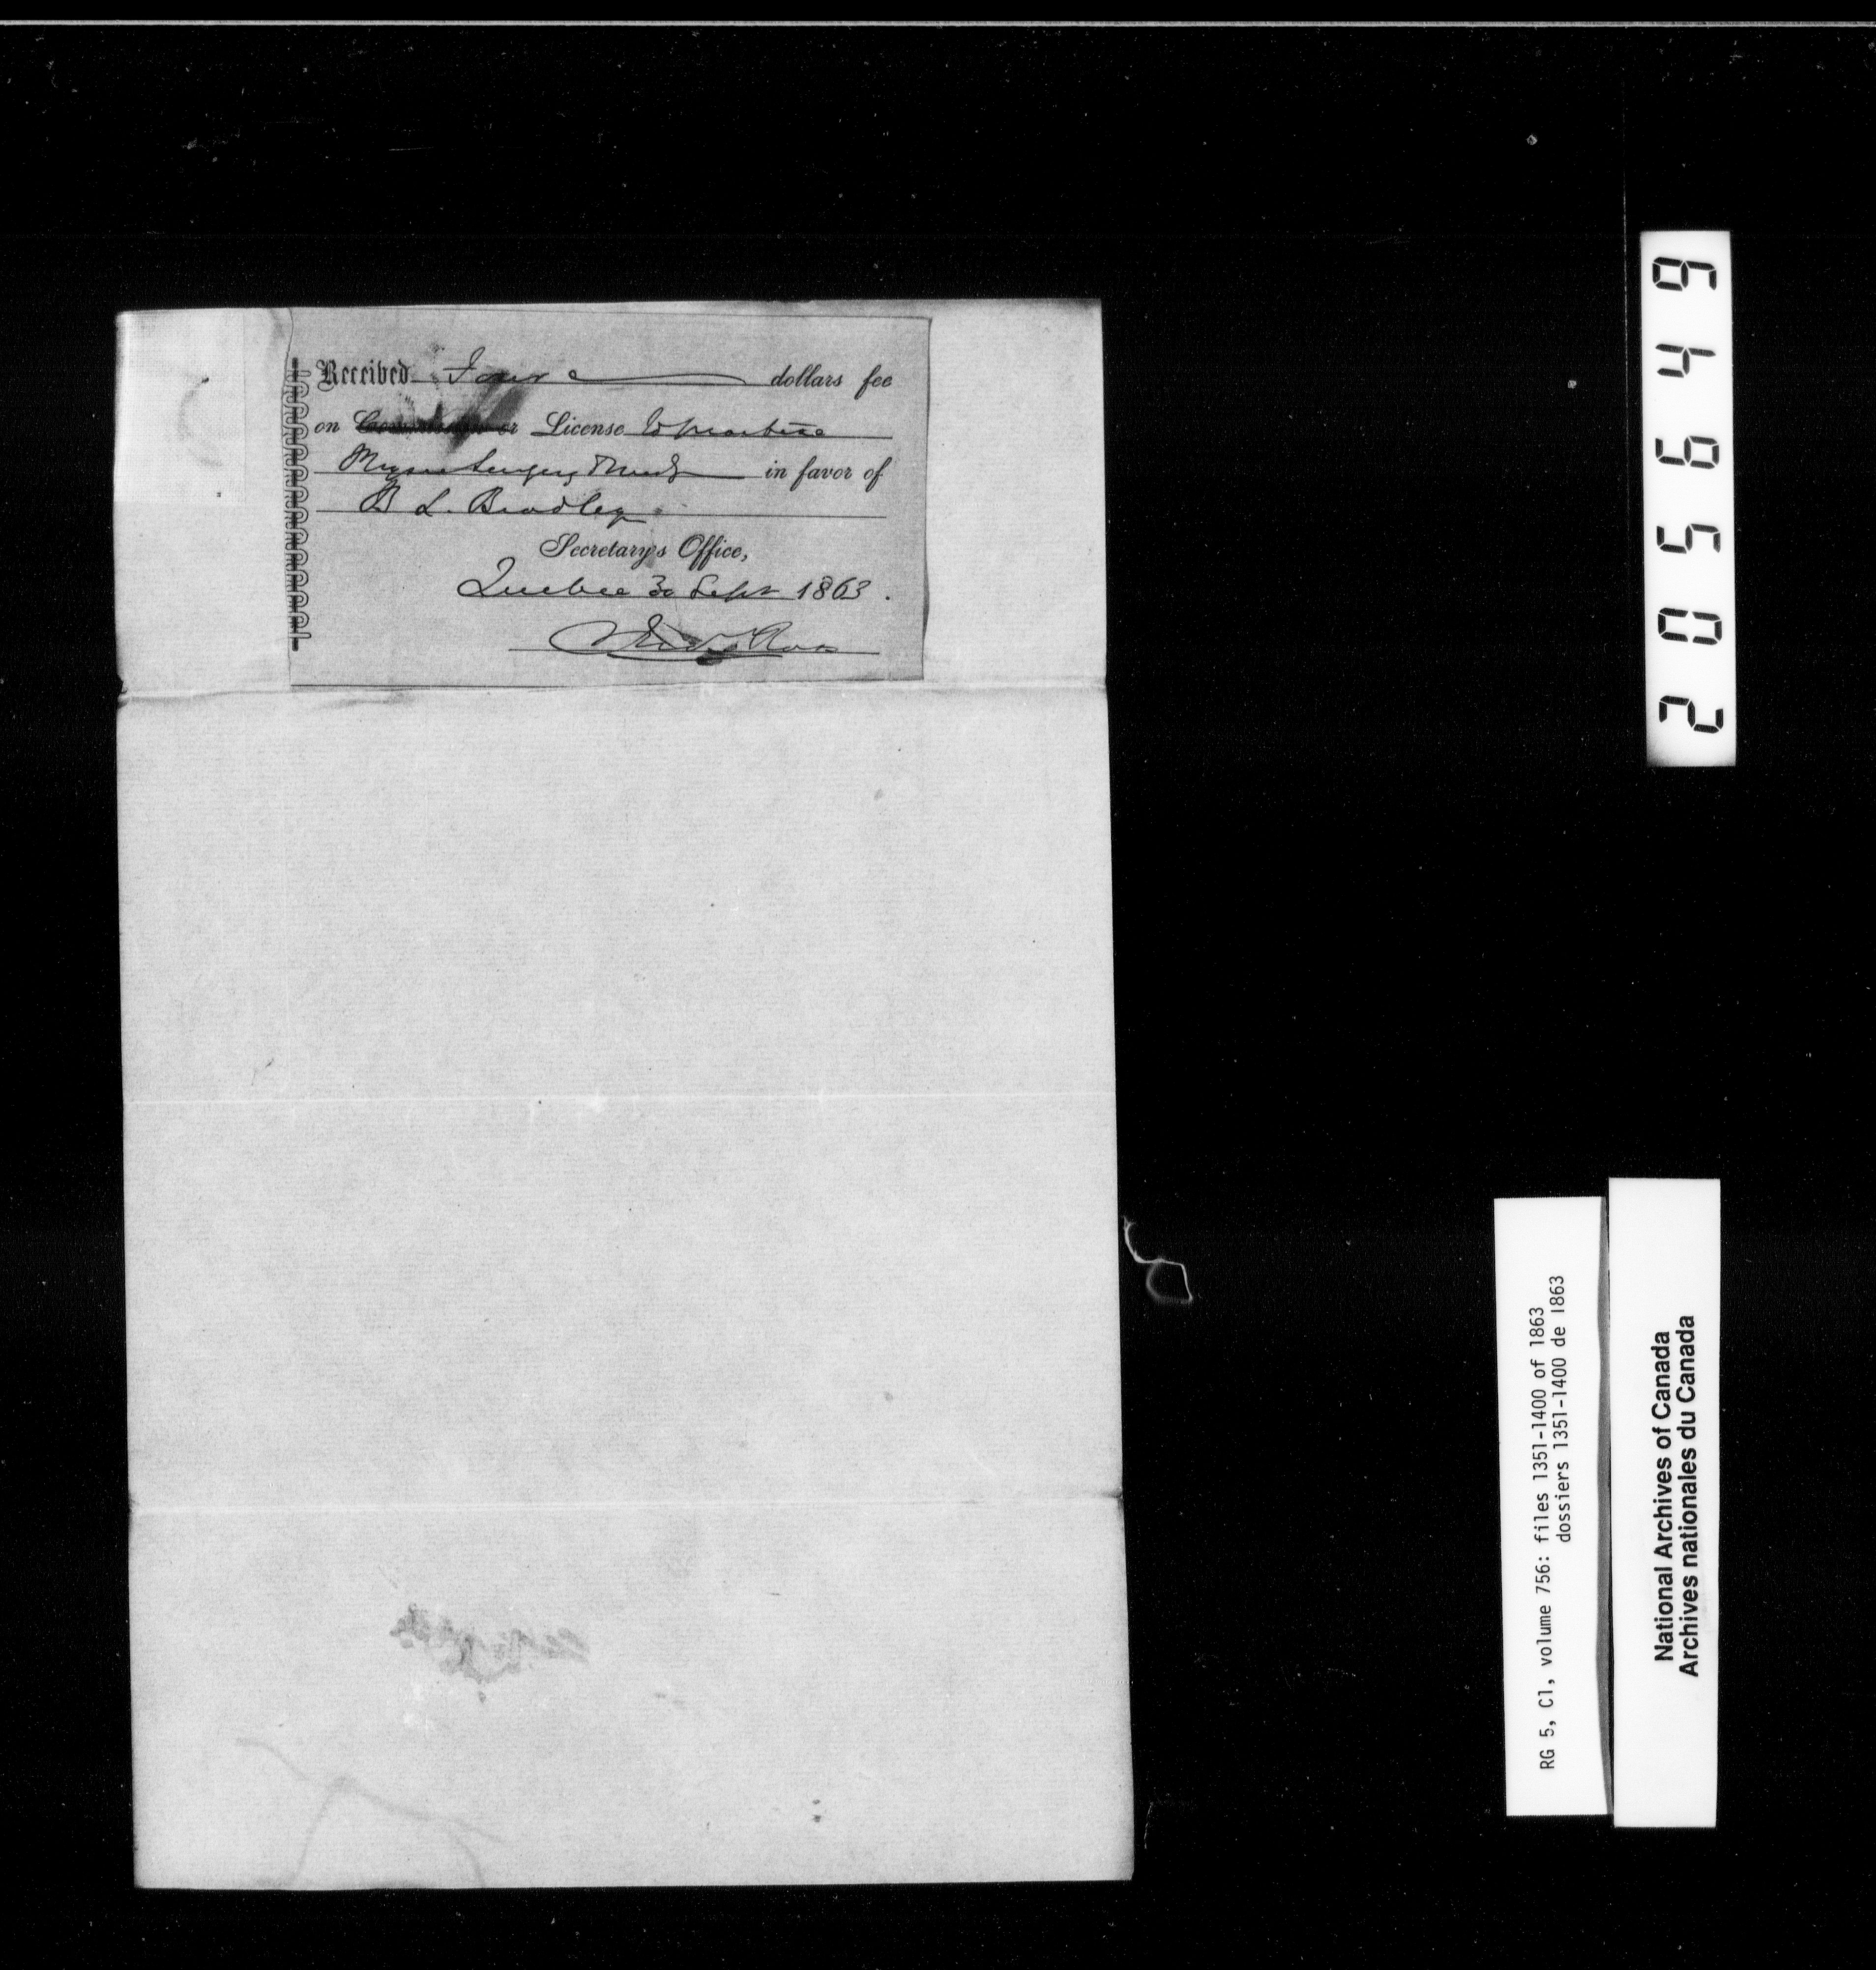 Received Four dollars fee
on Commission or License to practice
Physic Surgery & Midy in favor of
B L. Bradley.
Secretary's Office,
Quebec 30 Sept 1863.
205649
RG 5, C1, volume 756: files 1351-1400 of 1863
dossiers 1351-1400 de 1863
National Archives of Canada
Archives nationales du Canada